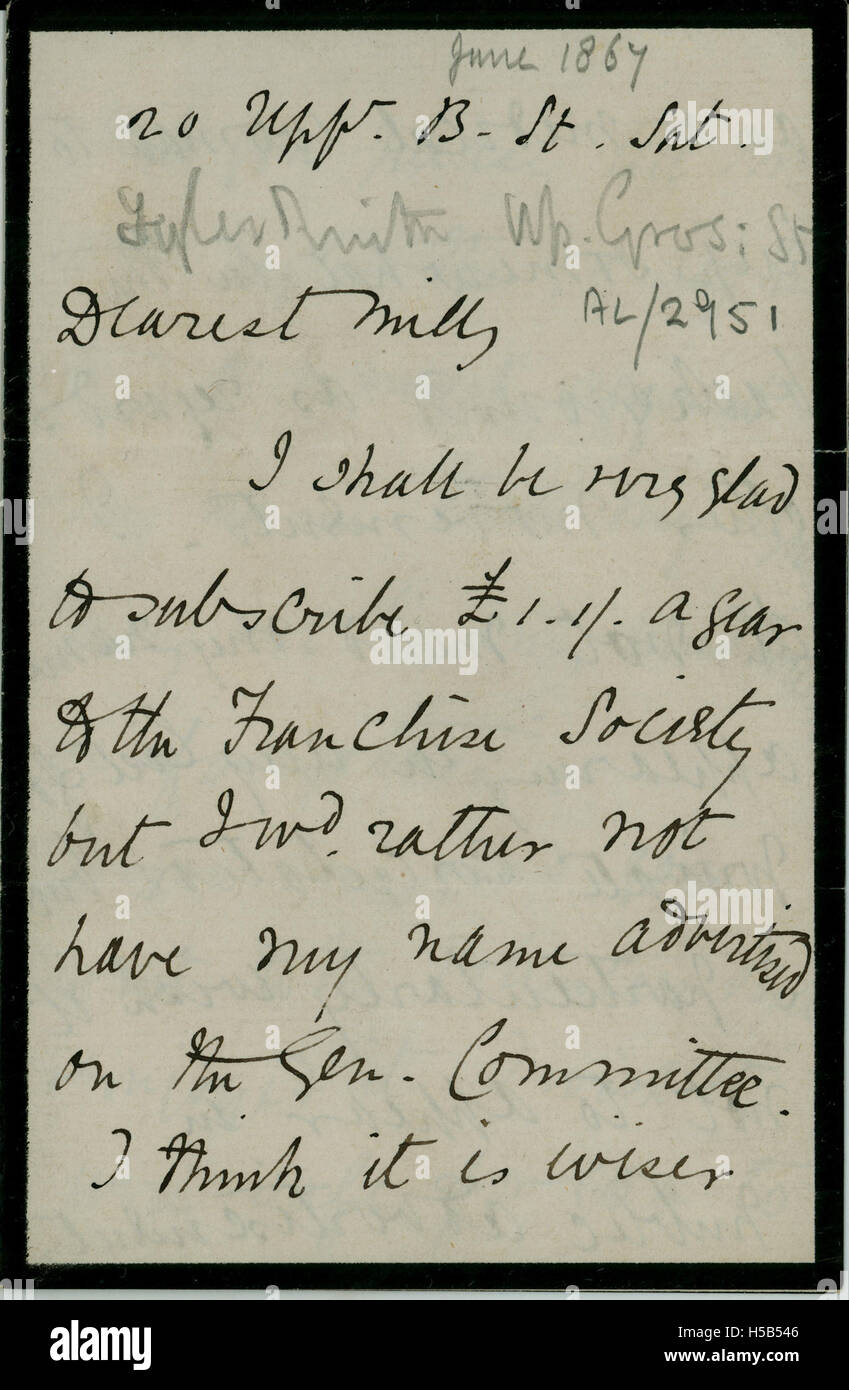 June 1867
20 Uppr. B- St. Sat.
Up. Gros: St
Dearest Milly
AL/2951
I shall be very glad
to subscribe £1.1/. a year
to the Franchise Society
but I wd. rather not
have my name advertised
on the Gen. Committee.
I think it is wiser
alamy
Image ID: H5B546
www.alamy.com